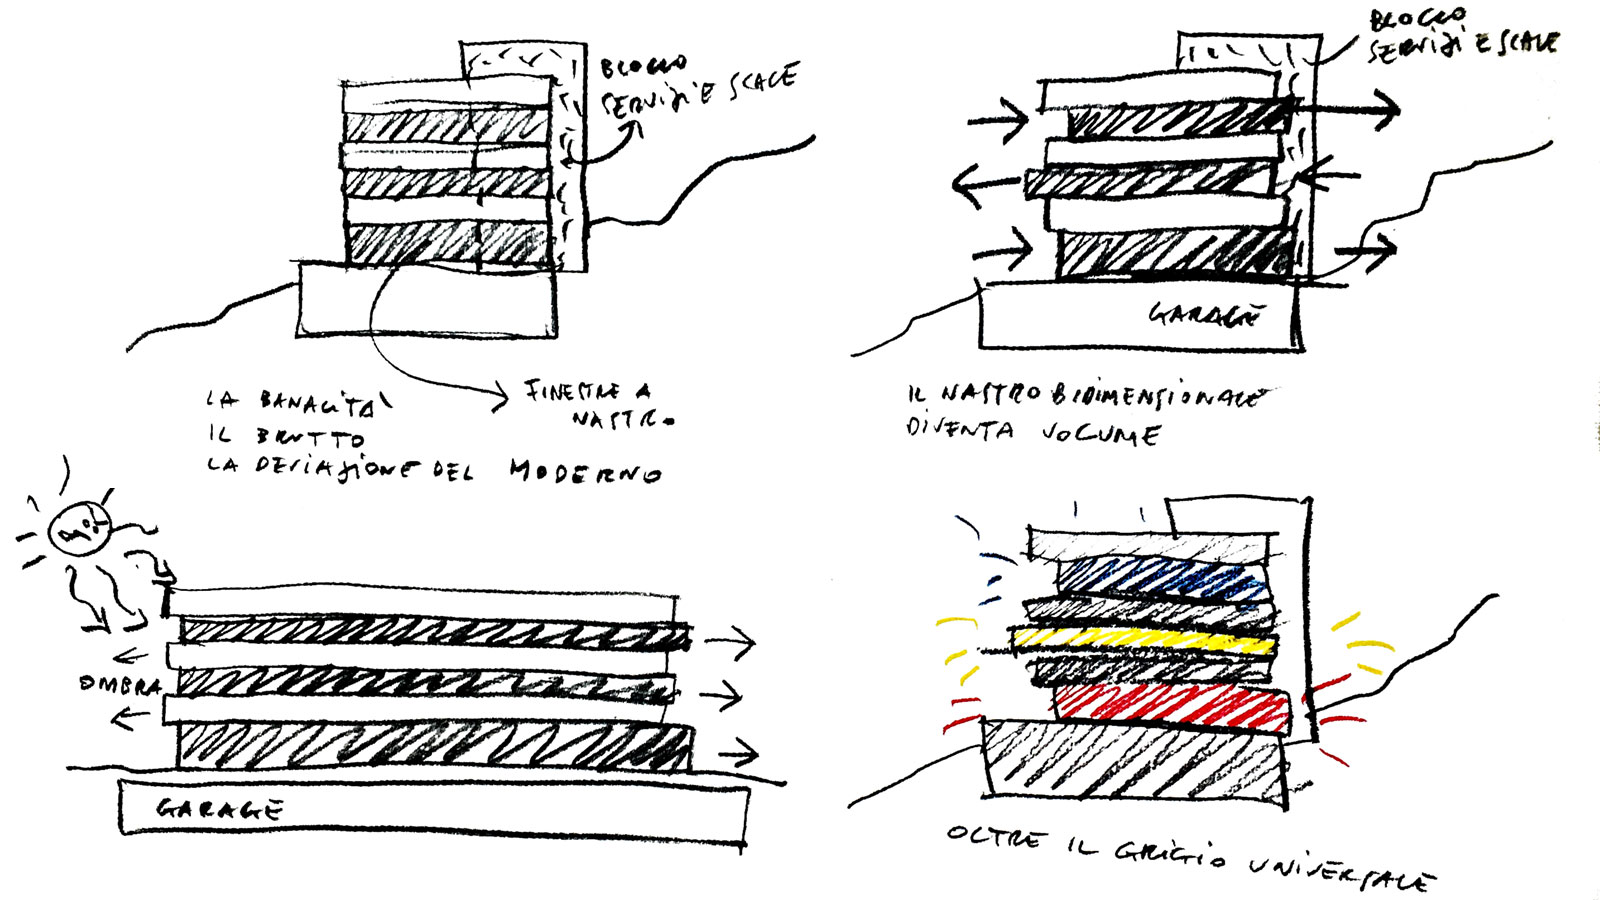 BLOCCO
SERVIZI E SCALE
LA BANALITÀ
IL BRUTTO
LA DEVIAZIONE DEL MODERNO
FINESTRE A
NASTRO
BLOCCO
SERVIZI E SCALE
GARAGE
IL NASTRO BIDIMENSIONALE
DIVENTA VOLUME
OMBRA
GARAGE
OLTRE IL GRIGIO UNIVERSALE